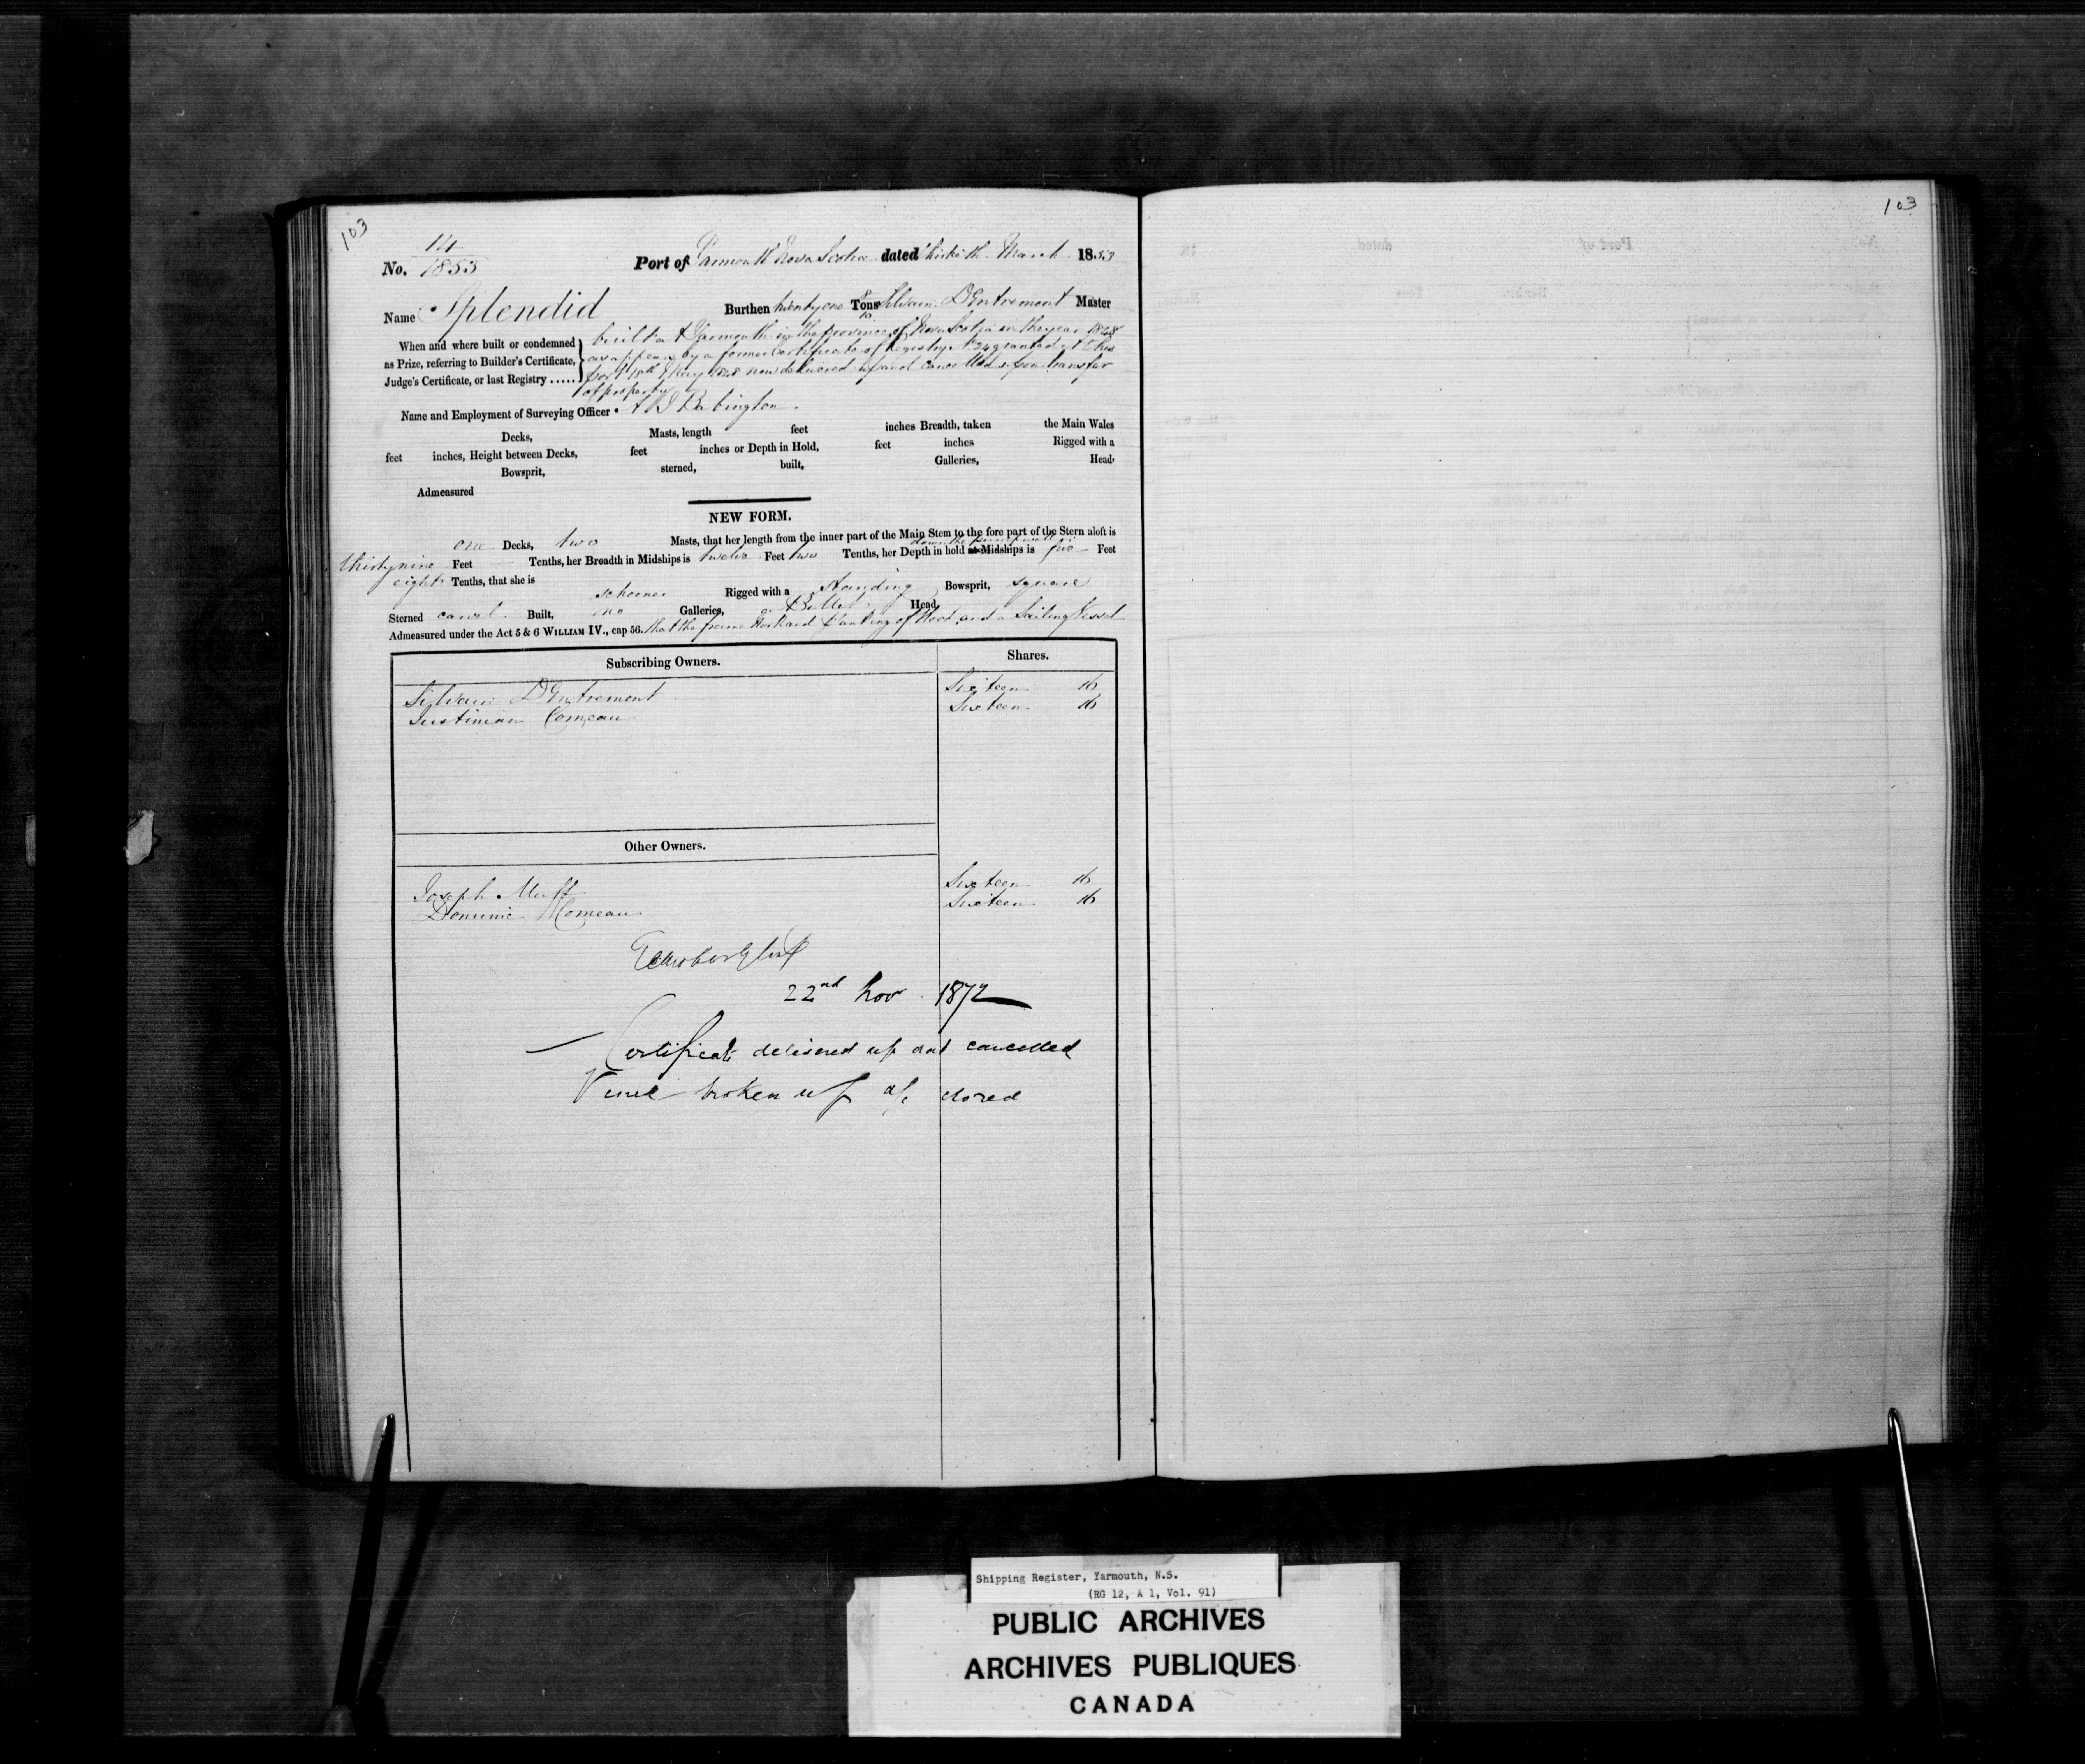 103
103
No. 14
1853
Port of Yarmouth Nova Scotia dated thirtieth March 1853
Name Splendid Burthen twenty one 8/10 Tons Silvain D'Entremont Master
When and where built or condemned
as Prize, referring to Builder's Certificate,
Judge's Certificate, or last Registry ......
built at Yarmouth in the province of Nova Scotia in the year 1848
as appears by a former Certificate of Registry No. 24 granted at this
port 18th May 1848 now delivered up and cancelled upon transfer
of property
Name and Employment of Surveying Officer
Decks, Masts, length feet inches Breadth, taken the Main Wales
feet inches, Height between Decks, feet inches or Depth in Hold, feet inches Rigged with a
Bowsprit, sterned, built, Galleries, Head,
Admeasured
NEW FORM.
one Decks, two Masts, that her length from the inner part of the Main Stem to the fore part of the Stern aloft is
thirty nine Feet — Tenths, her Breadth in Midships is twelve Feet two Tenths, her Depth in hold at Midships is five Feet
eight Tenths, that she is schooner Rigged with a standing Bowsprit, square
Sterned carvel Built, no Galleries, a Billet Head,
Admeasured under the Act 5 & 6 WILLIAM IV., cap 56. that the frame work and planking of Wood and a Sailing Vessel
Subscribing Owners. Shares.
Silvain D'Entremont Sixteen 16
Justinian Comeau Sixteen 16
Other Owners.
Joseph Muff Sixteen 16
Dominic Comeau Sixteen 16
22nd Nov. 1872
— Certificate delivered up and cancelled
Vessel broken up a/c closed
Shipping Register, Yarmouth, N.S.
(RG 12, A 1, Vol. 91)
PUBLIC ARCHIVES
ARCHIVES PUBLIQUES
CANADA